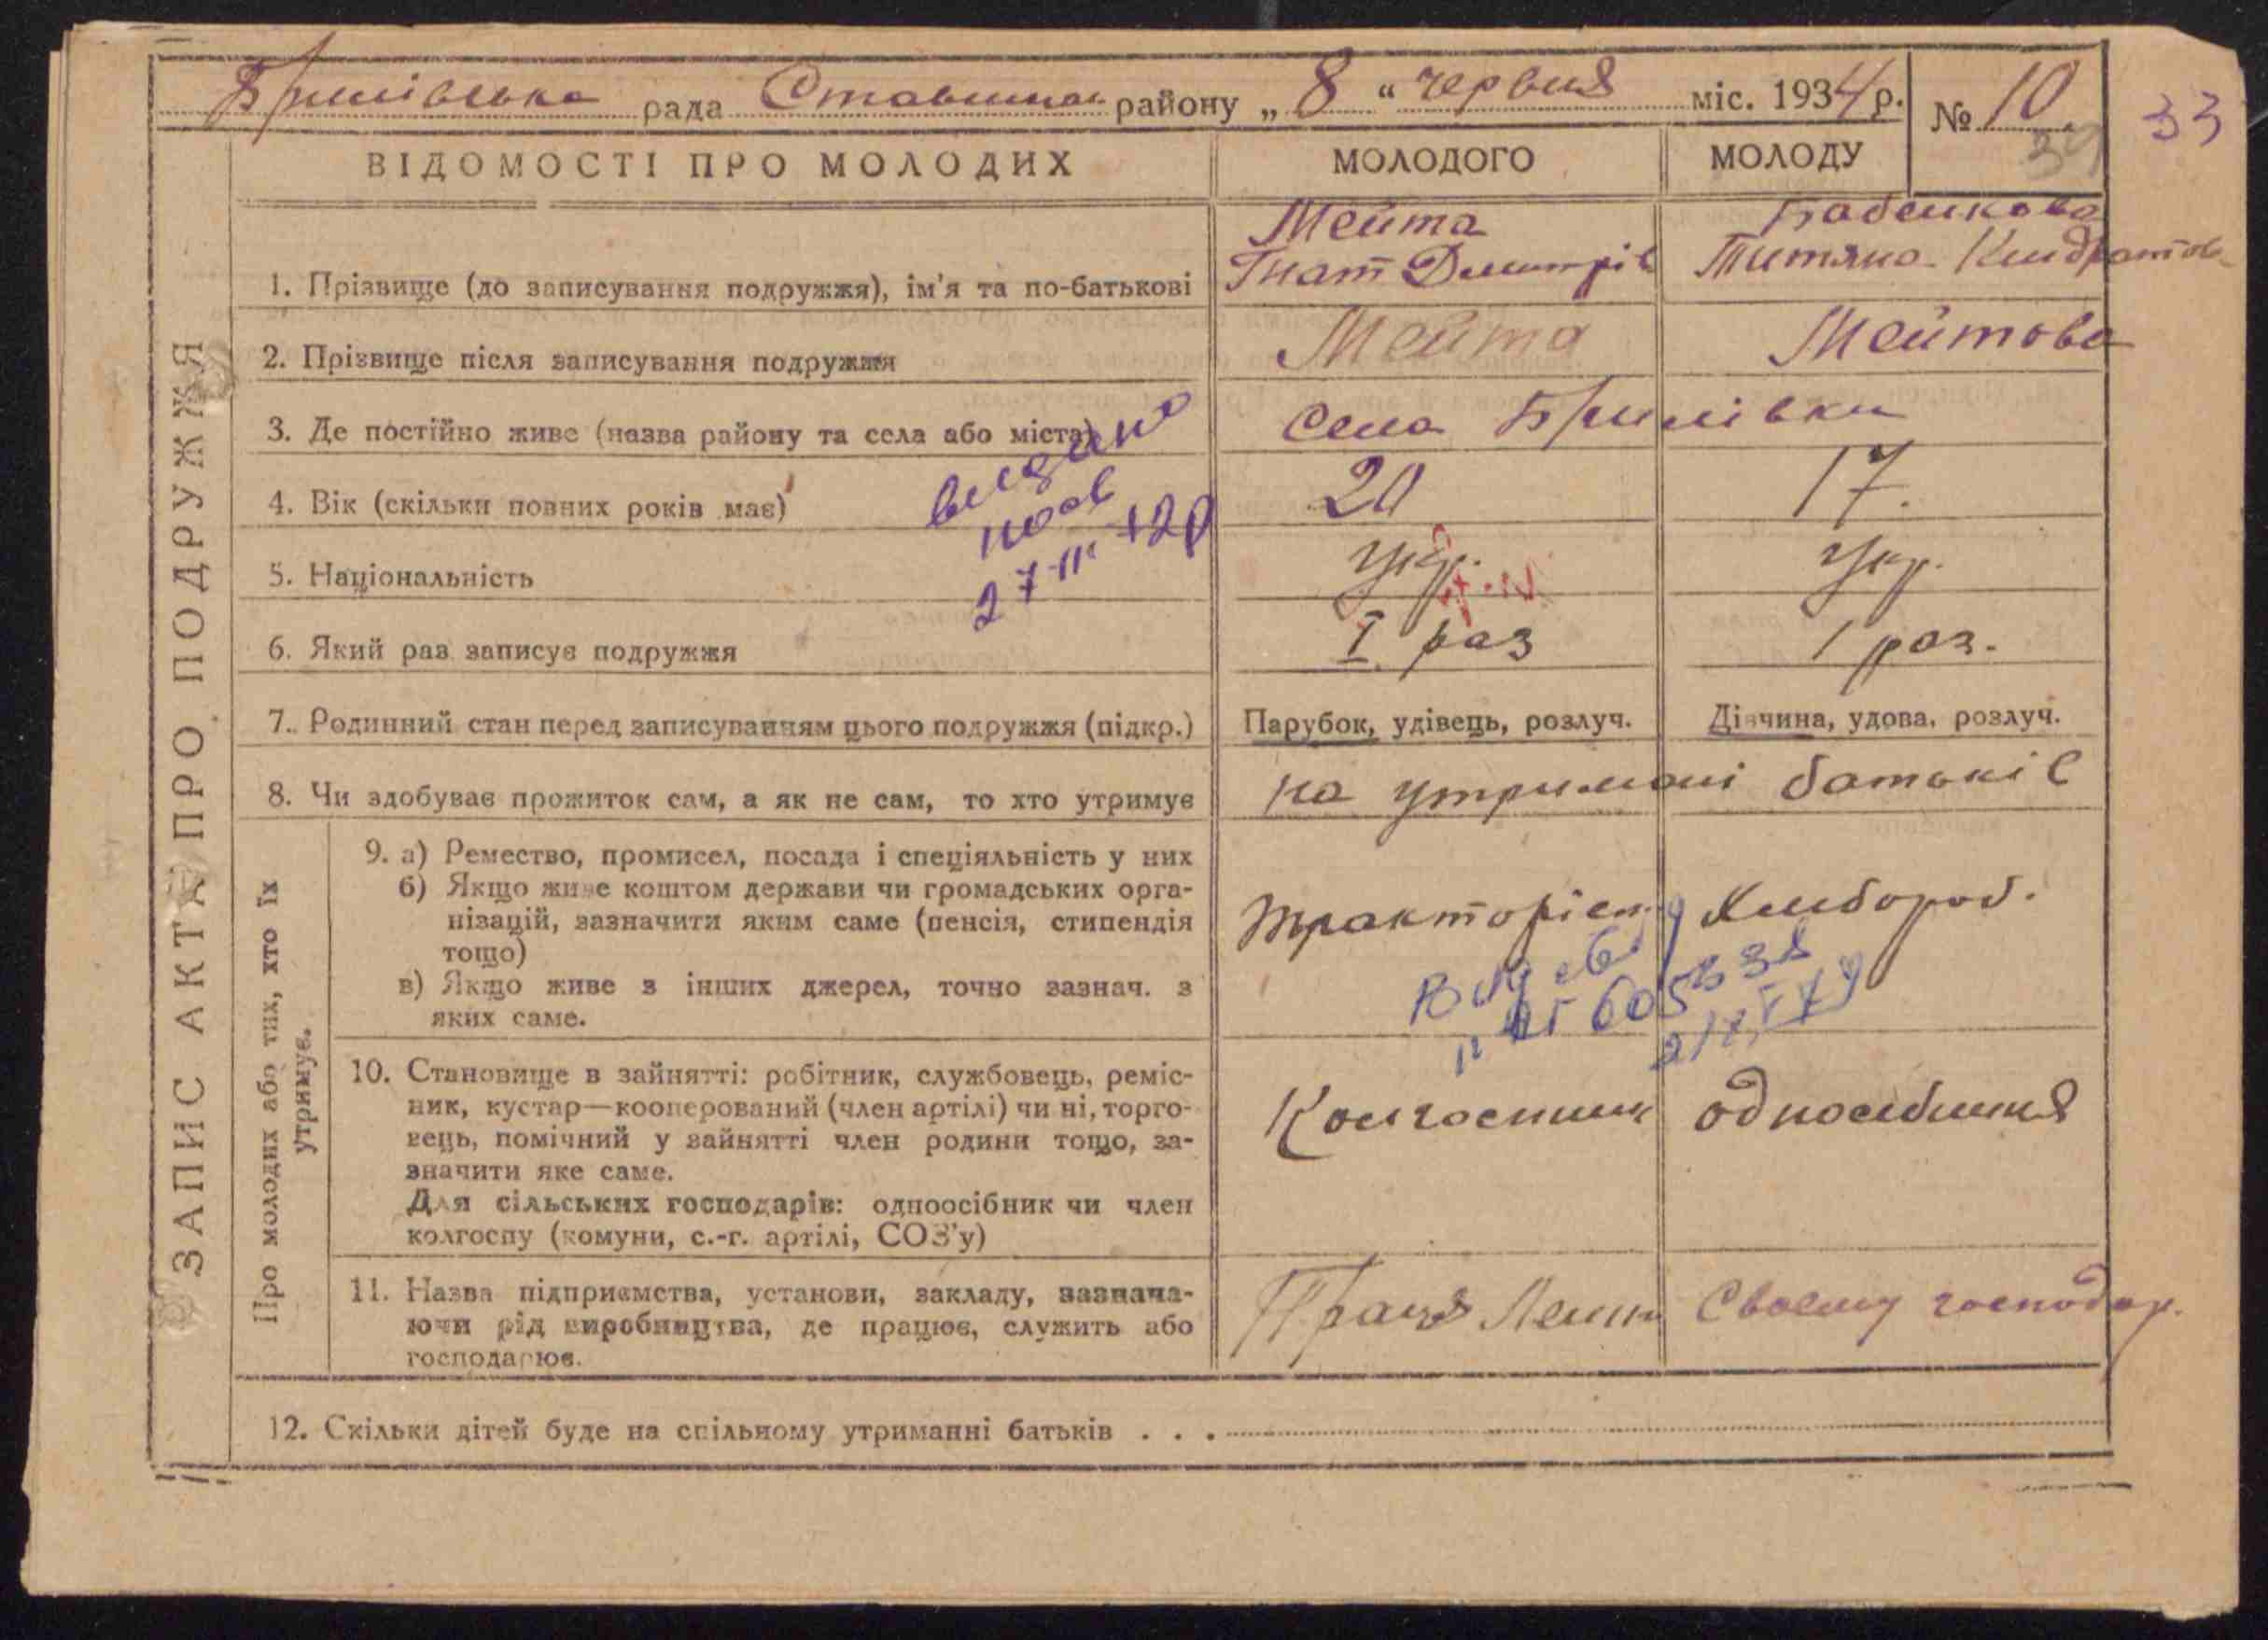 Брилівська рада Ставищан. району „ 8 “ червня міс. 1934 р. № 10
33
34
ВІДОМОСТІ ПРО МОЛОДИХ МОЛОДОГО МОЛОДУ
ЗАПИС АКТА ПРО ПОДРУЖЖЯ
1. Прізвище (до записування подружжя), ім'я та по-батькові
Мейта
Гнат Дмитрів
Бабенкова
Титяна Киндратов
2. Прізвище після записування подружжя Мейта Мейтова
3. Де постійно живе (назва району та села або міста) села Брилівки
4. Вік (скільки повних років має) 20 17.
5. Національність укр. укр.
видано
27-III
6. Який раз записує подружжя I раз 1 раз.
7. Родинний стан перед записуванням цього подружжя (підкр.) Парубок, удівець, розлуч. Дівчина, удова, розлуч.
8. Чи здобуває прожиток сам, а як не сам, то хто утримує на утримані батьків
Про молодих або тих, хто їх
утримує.
9. а) Ремество, промисел, посада і спеціяльність у них
б) Якщо живе коштом держави чи громадських орга-
нізацій, зазначити яким саме (пенсія, стипендія
тощо)
в) Якщо живе з інших джерел, точно зазнач. з
яких саме.
тракторіст Хлибороб.
10. Становище в зайнятті: робітник, службовець, реміс-
ник, кустар—кооперований (член артілі) чи ні, торго-
вець, помічний у зайнятті член родини тощо, за-
значити яке саме.
Для сільських господарів: одноосібник чи член
колгоспу (комуни, с.-г. артілі, СОЗ'у)
Колгоспник одноосібниця
11. Назва підприємства, установи, закладу, зазнача-
ючи рід виробництва, де працює, служить або
господарює.
Праця Ленин Своєму господар.
12. Скільки дітей буде на спільному утриманні батьків . . .